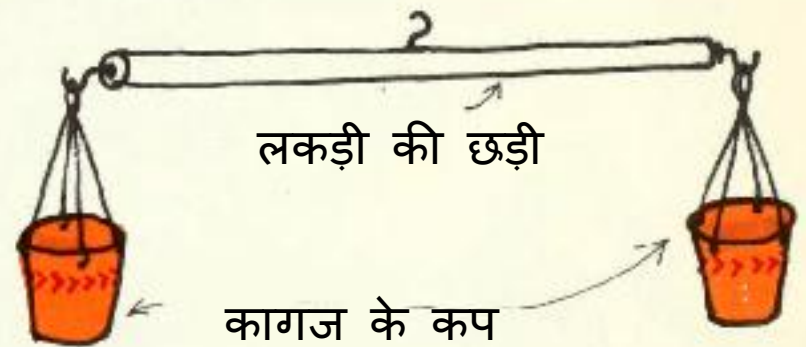 लकड़ी की छड़ी
कागज के कप